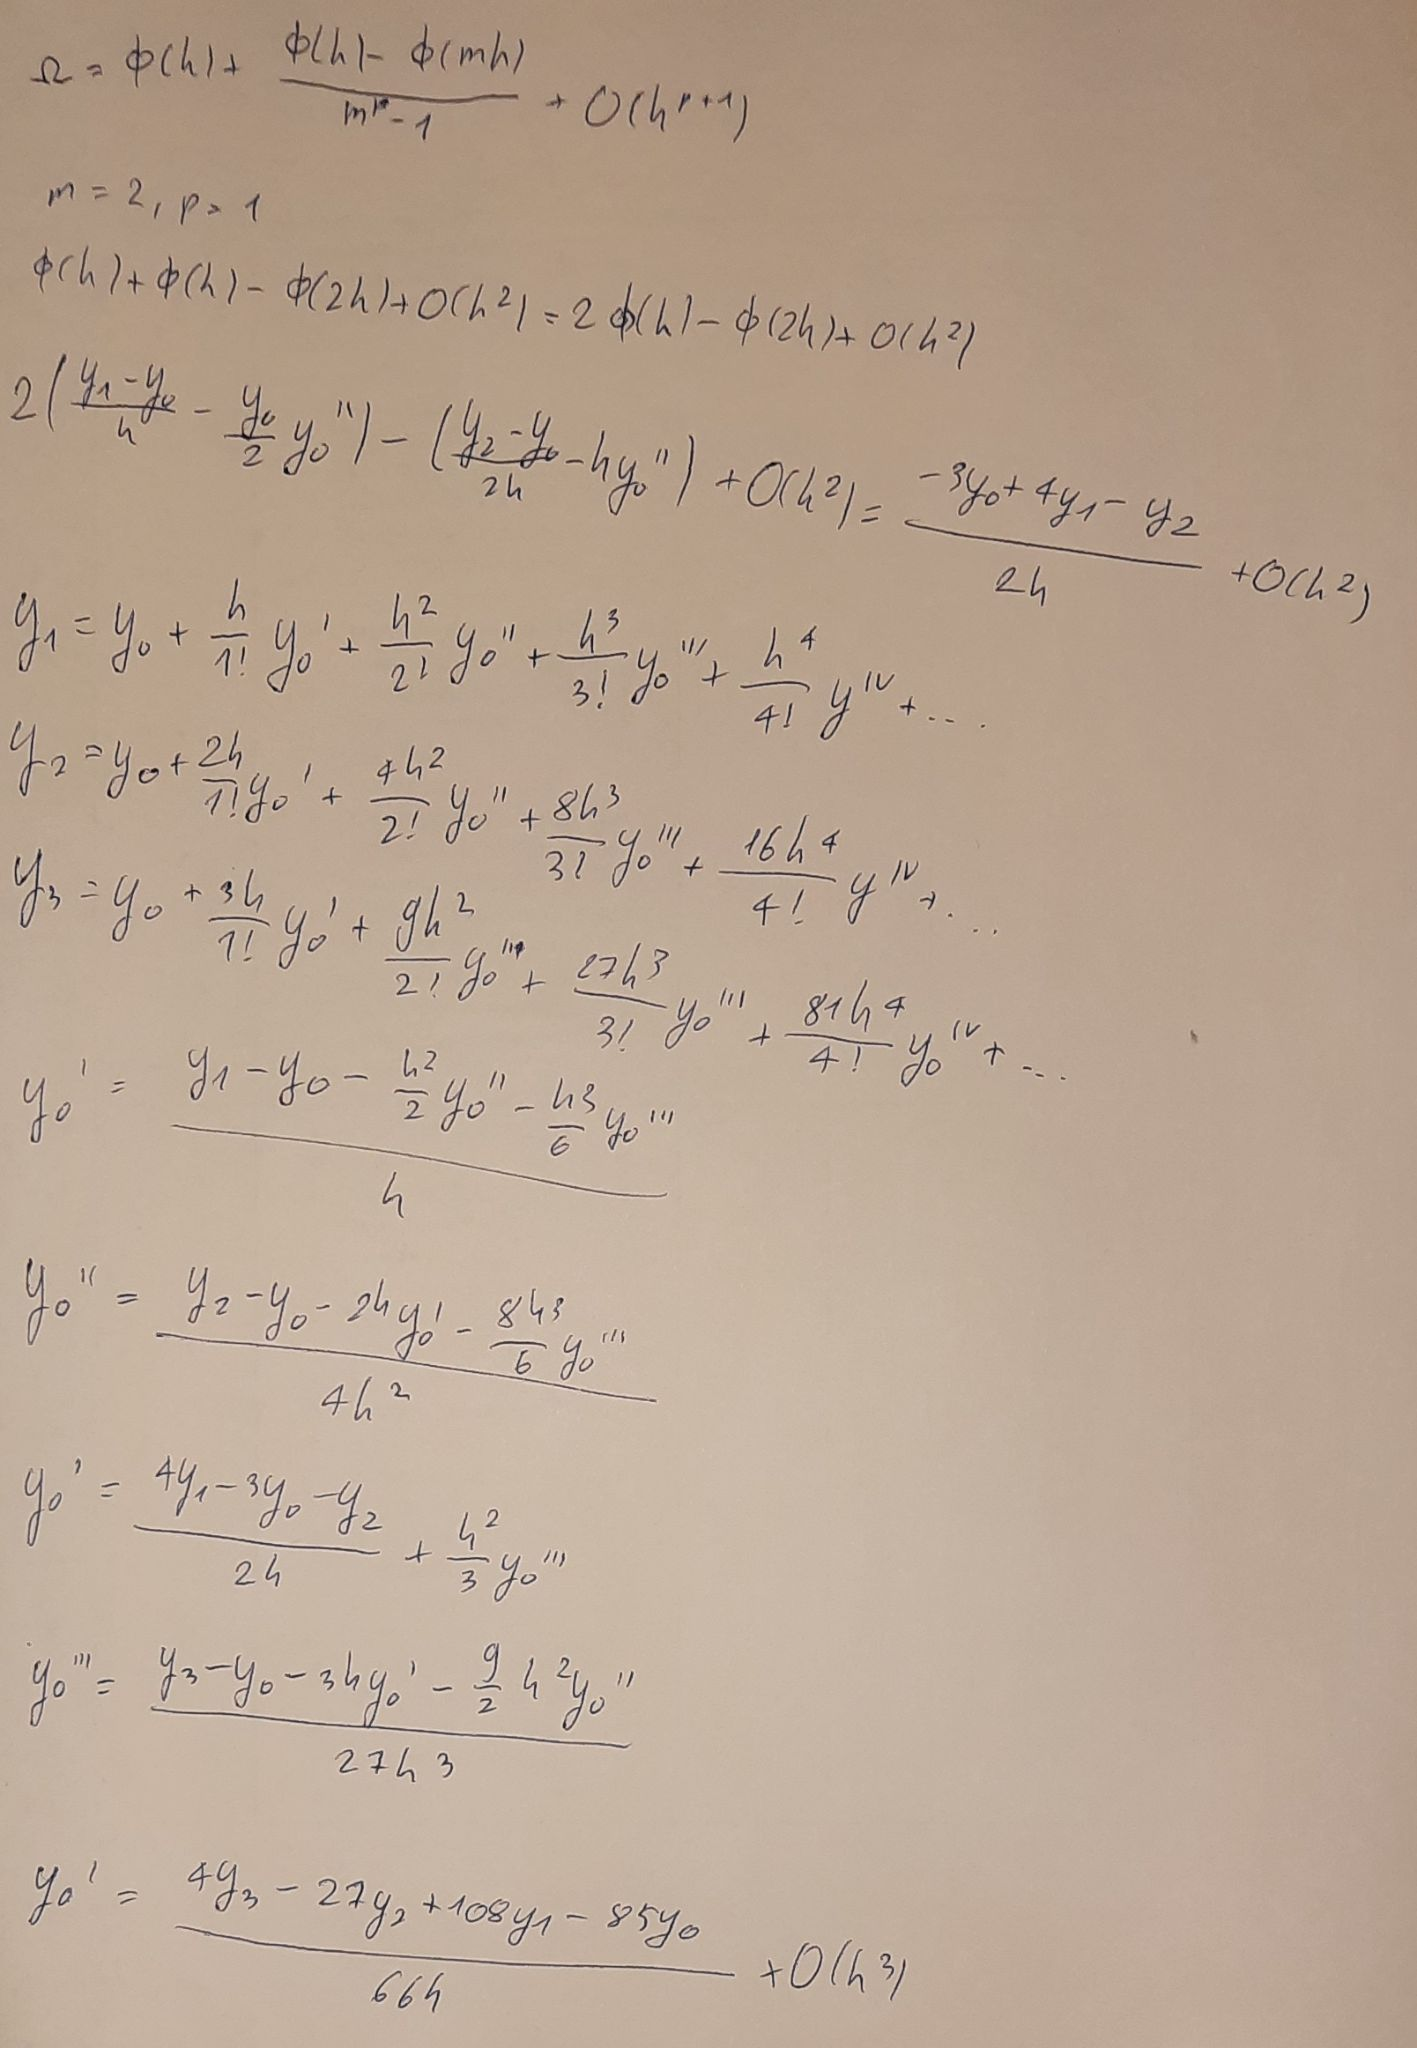 Ω = ϕ(h) + (ϕ(h) - ϕ(mh))/(m^p - 1) + O(h^(p+1))
m = 2, p = 1
ϕ(h) + ϕ(h) - ϕ(2h) + O(h²) = 2ϕ(h) - ϕ(2h) + O(h²)
2((y₁ - y₀)/h - y₀/2 y₀'') - ((y₂ - y₀)/2h - hy₀'') + O(h²) = (-3y₀ + 4y₁ - y₂)/2h + O(h²)
y₁ = y₀ + h/1! y₀' + h²/2! y₀'' + h³/3! y₀''' + h⁴/4! y^IV + ...
y₂ = y₀ + 2h/1! y₀' + 4h²/2! y₀'' + 8h³/3! y₀''' + 16h⁴/4! y^IV + ...
y₃ = y₀ + 3h/1! y₀' + 9h²/2! y₀''' + 27h³/3! y₀''' + 81h⁴/4! y₀^IV + ...
y₀' = (y₁ - y₀ - h²/2 y₀'' - h³/6 y₀''')/h
y₀'' = (y₂ - y₀ - 2hy₀' - 8h³/6 y₀''')/4h²
y₀' = (4y₁ - 3y₀ - y₂)/2h + h²/3 y₀'''
y₀''' = (y₃ - y₀ - 3hy₀' - 9/2 h²y₀'')/27h³
y₀' = (4y₃ - 27y₂ + 108y₁ - 85y₀)/66h + O(h³)